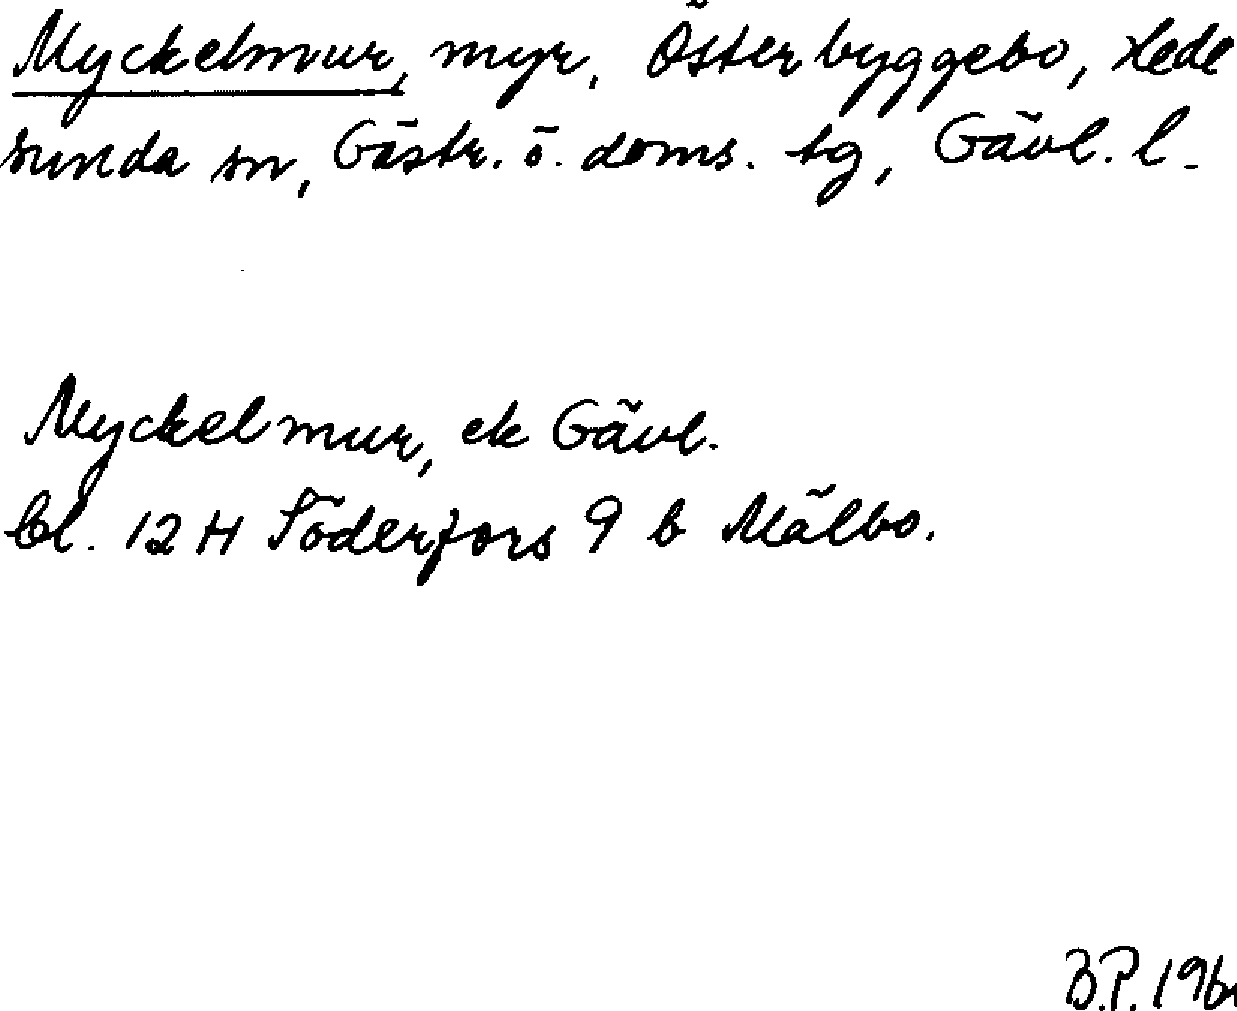 Myckelmur, myr, Österbyggebo, Hede
sunda sn, Gästr. ö. doms. tg, Gävl. l.
Myckelmur, ek Gävl.
bl. 12 H Söderfors 9 b Mälbo.
B.P. 196